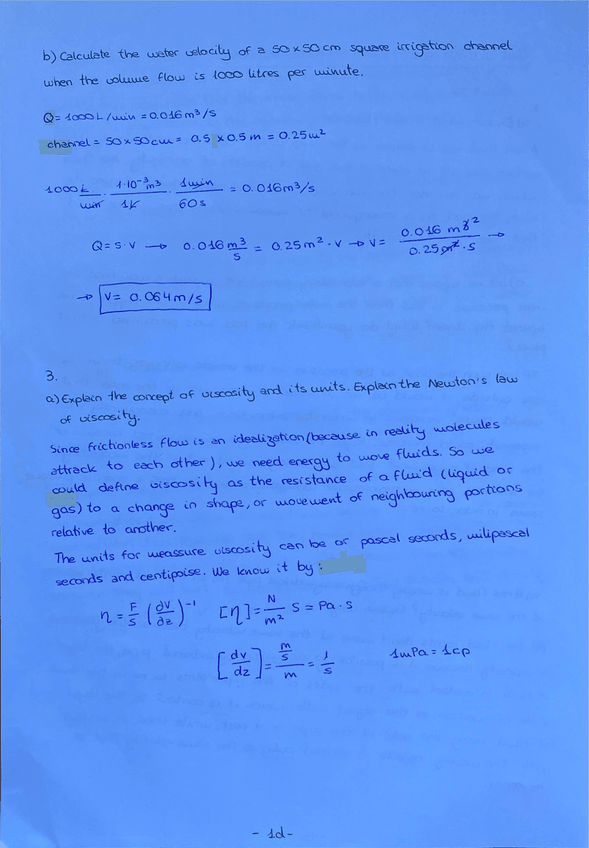 b) Calculate the water velocity of a 50 x 50 cm square irrigation channel
when the volume flow is 1000 litres per minute.
Q = 1000 L/min = 0.016 m³/s
channel = 50 x 50 cm = 0.5 x 0.5 m = 0.25 m²
1000 L/min · 1·10⁻³ m³/1 L · 1 min/60 s = 0.016 m³/s
Q = S·V → 0.016 m³/s = 0.25 m² · V → V = 0.016 m³/0.25 m² · s →
→ V = 0.064 m/s
3.
a) Explain the concept of viscosity and its units. Explain the Newton's law
of viscosity.
Since frictionless flow is an idealization (because in reality molecules
attrack to each other), we need energy to move fluids. So we
could define viscosity as the resistance of a fluid (liquid or
gas) to a change in shape, or movement of neighbouring portions
relative to another.
The units for meassure viscosity can be or pascal seconds, milipascal
seconds and centipoise. We know it by:
η = F/S (∂V/∂z)⁻¹ [η] = N/m² s = Pa·s
[dv/dz] = m/s/m = 1/s 1mPa = 1cp
- 1d -